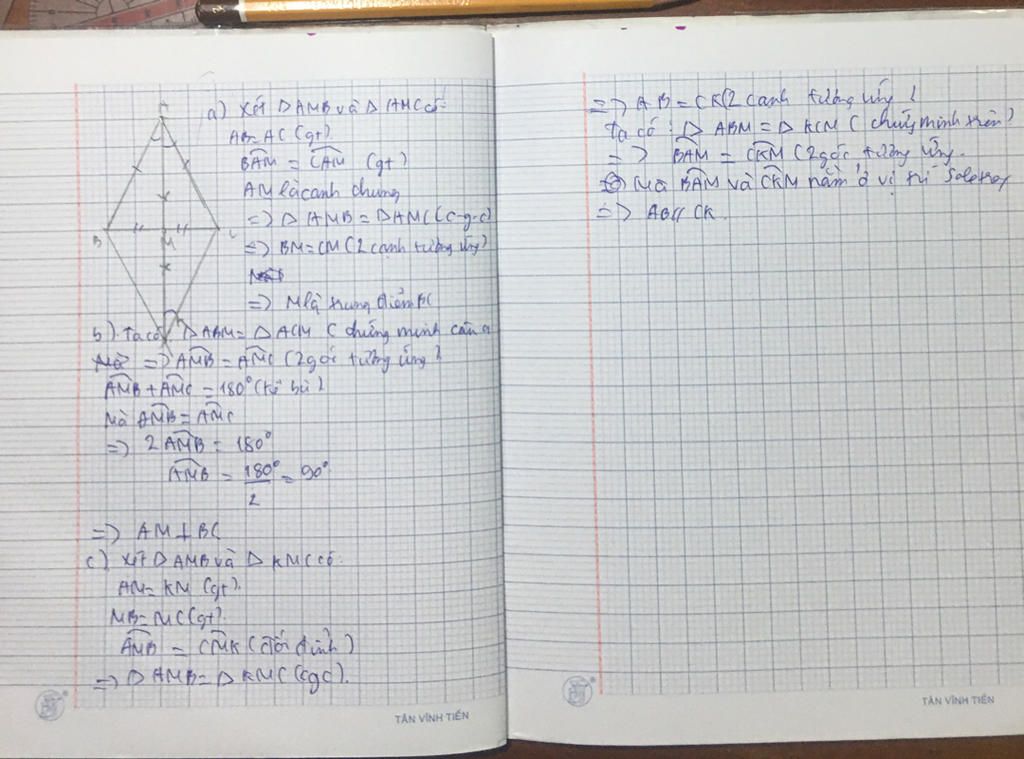 A
B
M
C
K
a) Xét Δ AMB và Δ AMC có:
AB = AC (gt).
BAM = CAM (gt)
AM là cạnh chung
=> Δ AMB = Δ AMC (c-g-c)
=> BM = CM (2 cạnh tương ứng)
=> M là trung điểm BC
b). Ta có: Δ ABM = Δ ACM (chứng minh câu a
=> AMB = AMC (2 góc tương ứng)
AMB + AMC = 180° (kề bù)
Mà AMB = AMC
=> 2 AMB = 180°
AMB = 180°/2 = 90°
=> AM ⊥ BC
c). Xét Δ AMB và Δ KMC có:
AM = KM (gt).
MB = MC (gt).
AMB = CMK (đối đỉnh)
=> Δ AMB = Δ KMC (cgc).
TÂN VĨNH TIẾN
=> AB = CK (2 cạnh tương ứng)
Ta có: Δ ABM = Δ KCM (chứng minh trên)
=> BAM = CKM (2 góc tương ứng.
Mà BAM và CKM nằm ở vị trí Soletrog
=> AB // CK.
TÂN VĨNH TIẾN